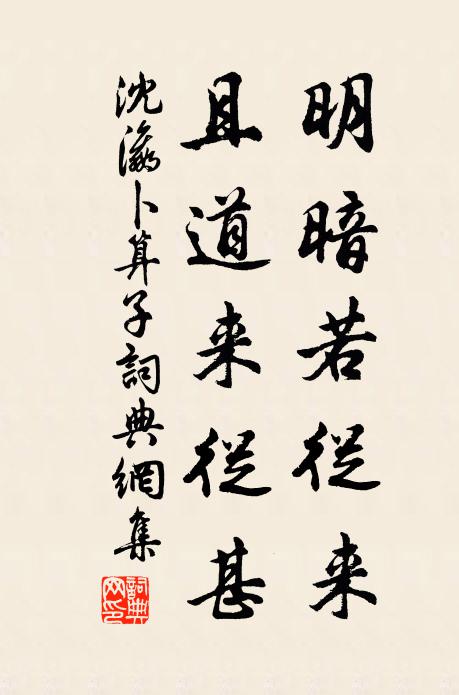 明暗若從来
且道来從甚
沈瀛卜算子詞典網集
詞典
网印